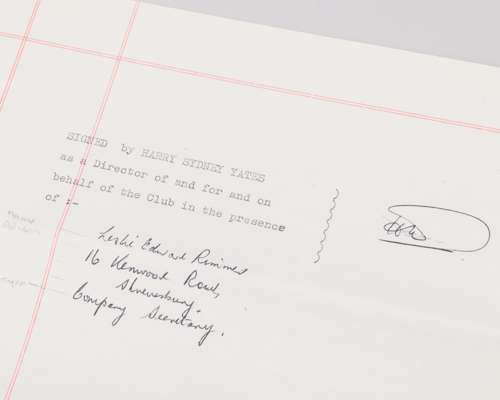 SIGNED by HARRY SYDNEY YATES
as a Director of and for and on
behalf of the Club in the presence
of :-
Leslie Edward Rimmer
16 Kenwood Road,
Shrewsbury.
Company Secretary.